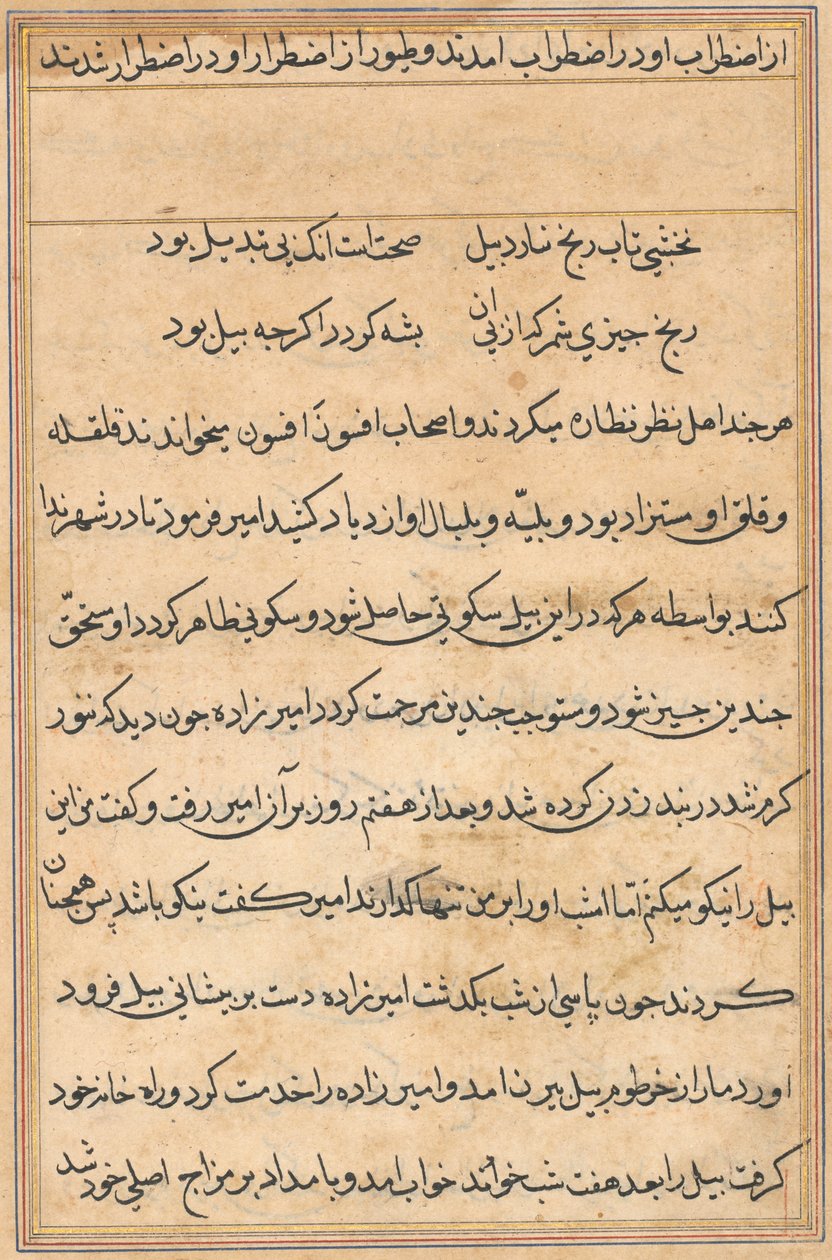 از اضطراب او در اضطراب امدند و طیور از اضطرار او در اضطرار شدند
نخشبی تاب رنج نارد بیل صحت است انک بی تبدیل بود
رنج جیزی شمر که از بی ان بشه کردد اکرجه بیل بود
هر جند اهل نظر نظاره میکردند و اصحاب افسون افسون میخواندند قلقله
و قلق او مستزاد بود و بلیّه و بلبال او ازدیاد کشید امیر فرمود تا در شهر ندا
کنند بواسطه هر که در این بیل سکوتی حاصل شود و سکونی ظاهر کردد او مستحقّ
جندین جیز شود و مستوجب جندین مرحمت کردد امیرزاده جون دید که تنور
کرم شد در بند زدن کرده شد و بعد از هفتم روز بر آن امیر رفت و کفت من این
بیل را نیکو میکنم امّا امشب او را بر من تنها کذارند امیر کفت نیکو باشد پس همجنان
کردند جون پاسی از شب بکذشت امیرزاده دست بر بیشانی بیل فرود
اورد مار از خرطوم بیل بیرن امد و امیرزاده را خدمت کرد و راه خانه خود
کرفت بیل را بعد هفت شب خواند خواب امد و بامداد بر مزاج اصلی خود شد